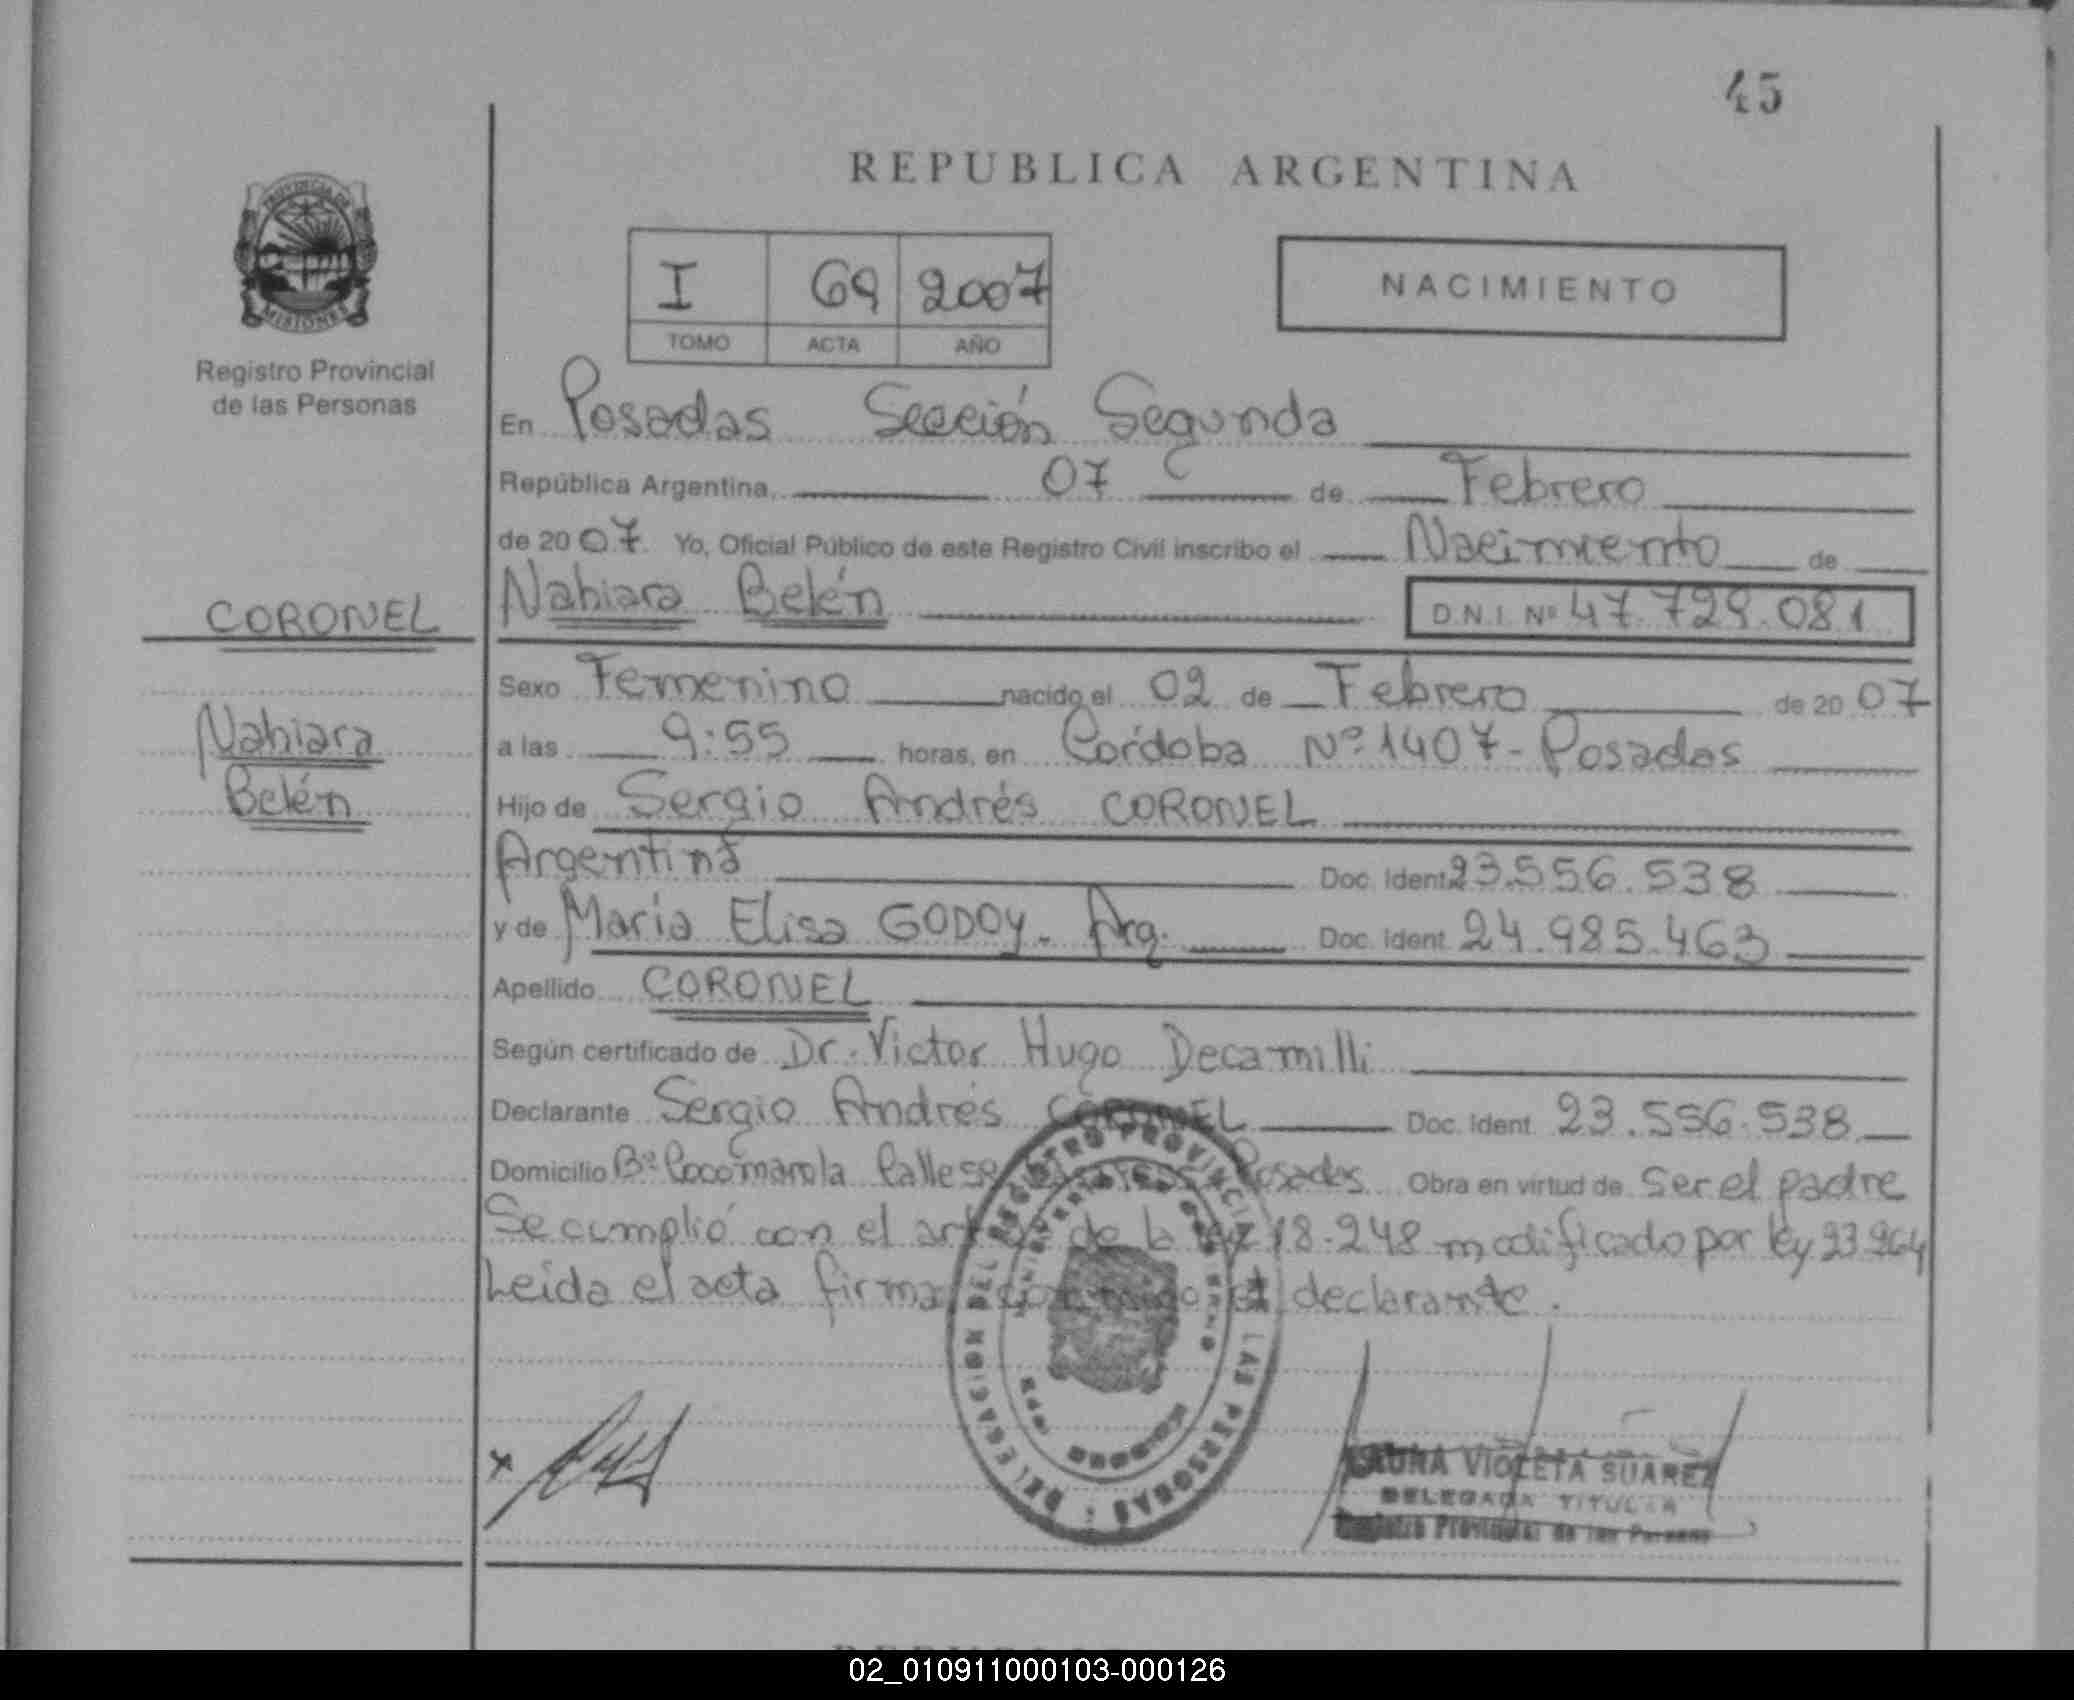 45
REPUBLICA ARGENTINA
PROVINCIA DE
MISIONES
Registro Provincial
de las Personas
I 69 2007
TOMO ACTA AÑO
NACIMIENTO
En Posadas Sección Segunda
República Argentina, 07 de Febrero
de 2007 Yo, Oficial Público de este Registro Civil inscribo el Nacimiento de
CORONEL
Nahiara Belén D.N.I. Nº 47.729.081
Sexo Femenino nacido el 02 de Febrero de 2007
Nahiara
a las 9:55 horas, en Córdoba Nº 1407 - Posadas
Belén
Hijo de Sergio Andrés CORONEL
Argentina Doc. Ident. 23.556.538
y de María Elisa GODOY. Arg. Doc. Ident. 24.985.463
Apellido CORONEL
Según certificado de Dr. Victor Hugo Decamilli
Declarante Sergio Andrés CORONEL Doc. Ident. 23.556.538
Domicilio Bº Cocomarola Calle Posadas Obra en virtud de Ser el padre
Se cumplió con el art de la 18.248 modificado por ley 23.264
Leida el acta firma el declarante.
DELEGACION DEL REGISTRO PROVINCIAL LAS PERSONAS
LAURA VIOLETA SUAREZ
DELEGADA TITULAR
Registro Provincial de las Personas
02_010911000103-000126